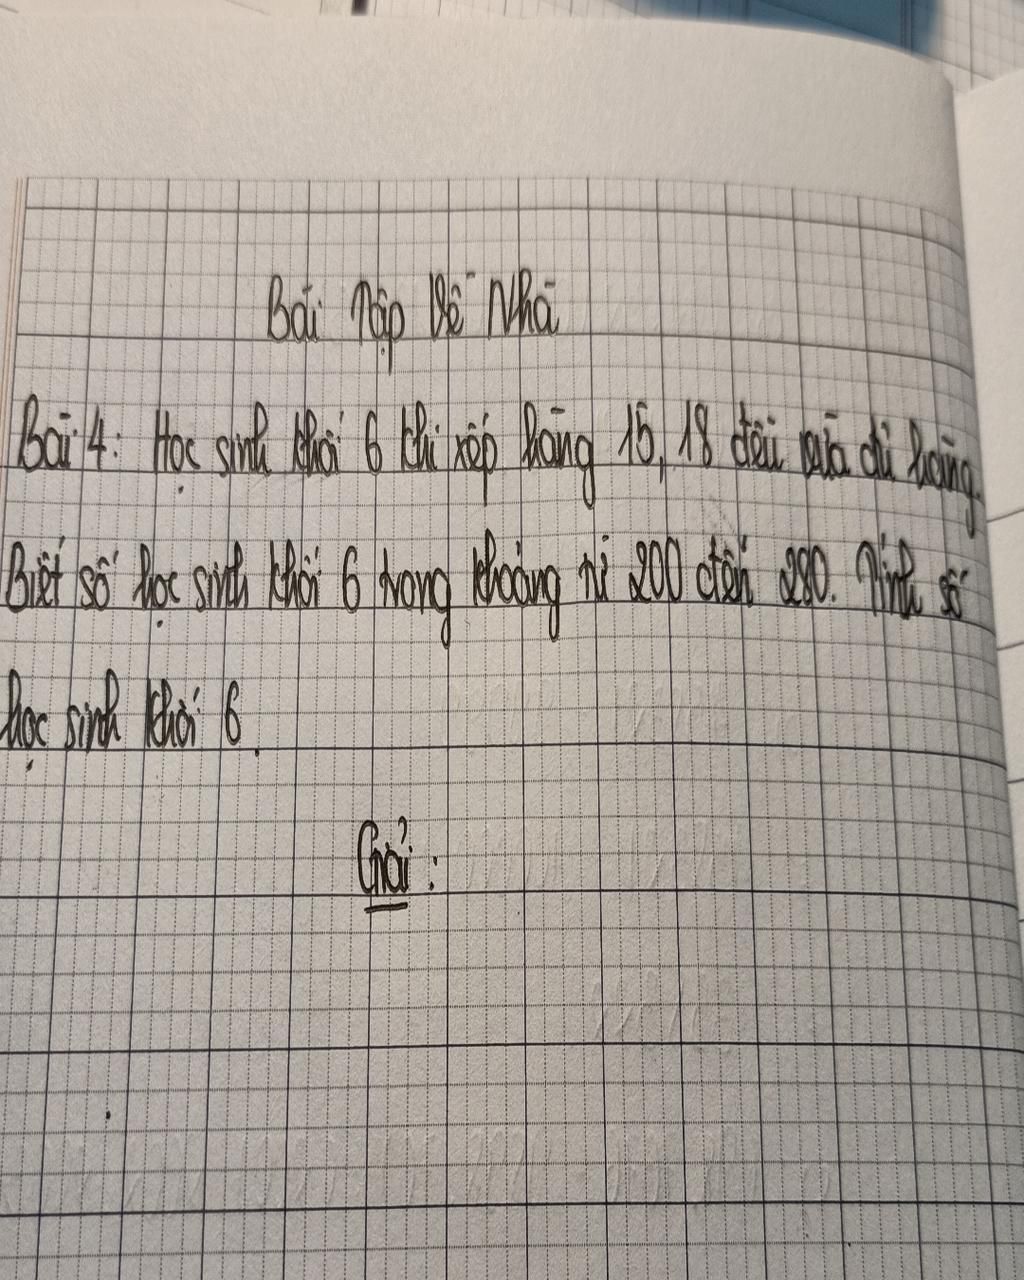 Bài Tập Về Nhà
Bài 4: Học sinh khối 6 khi xếp hàng 15, 18 đều vừa đủ hàng.
Biết số học sinh khối 6 trong khoảng từ 200 đến 280. Tính số
học sinh khối 6.
Giải: